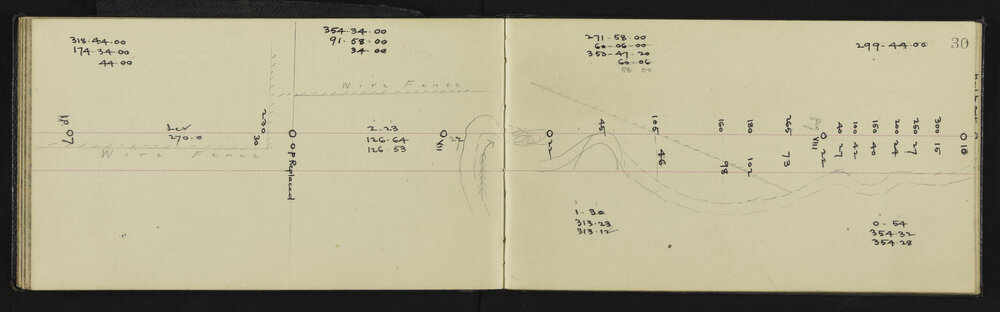 318-44-00
174-34-00
44-00
354-34-00
91-58-00
34-00
Wire Fence
Lev
270.0
Wire Fence
230
30
O P Replaced
2-23
126.64
126.53
VII
22
271-58-00
60-06-00
353-47-20
60-06
58-00
299-44-00
30
22
45
105
46
150
98
180
102
265
78
VIII
22
40
27
100
24
150
04
200
42
250
27
300
15
1-30
313.23
313.12
0-54
354.32
354.28